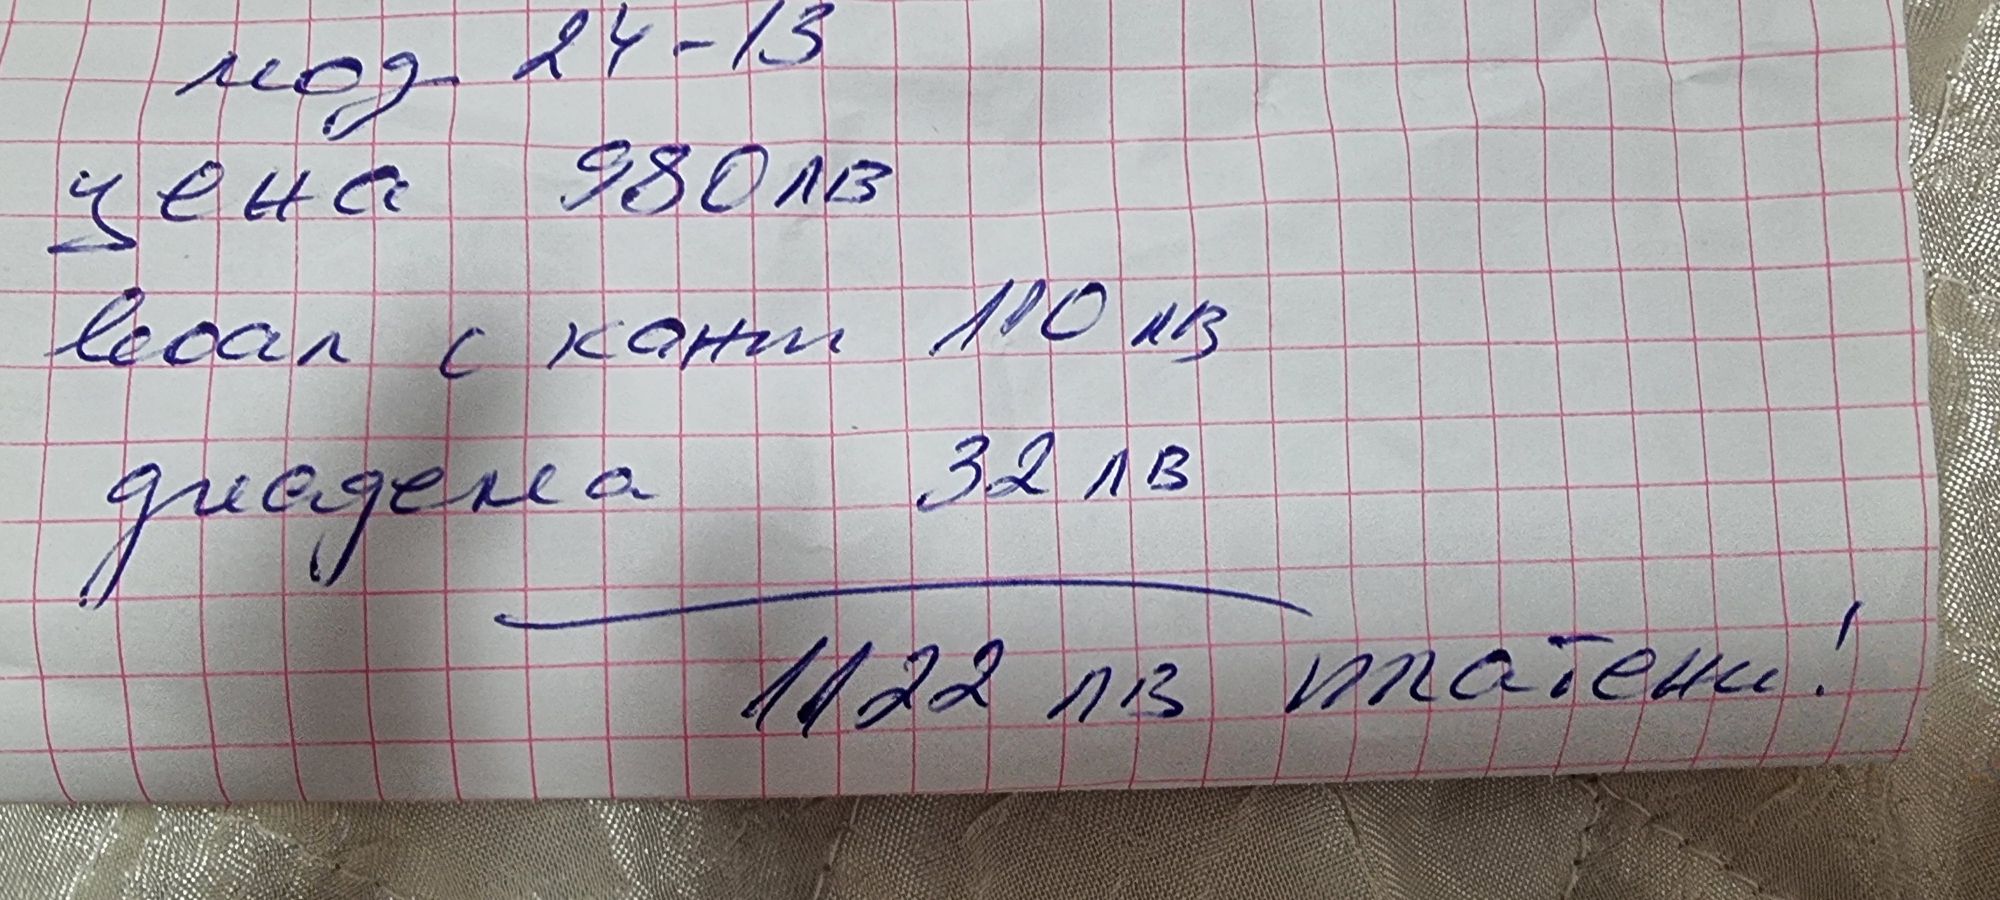 мод 24-13
цена 980лв
воал с кант 110 лв
диадема 32 лв
1122 лв платени!